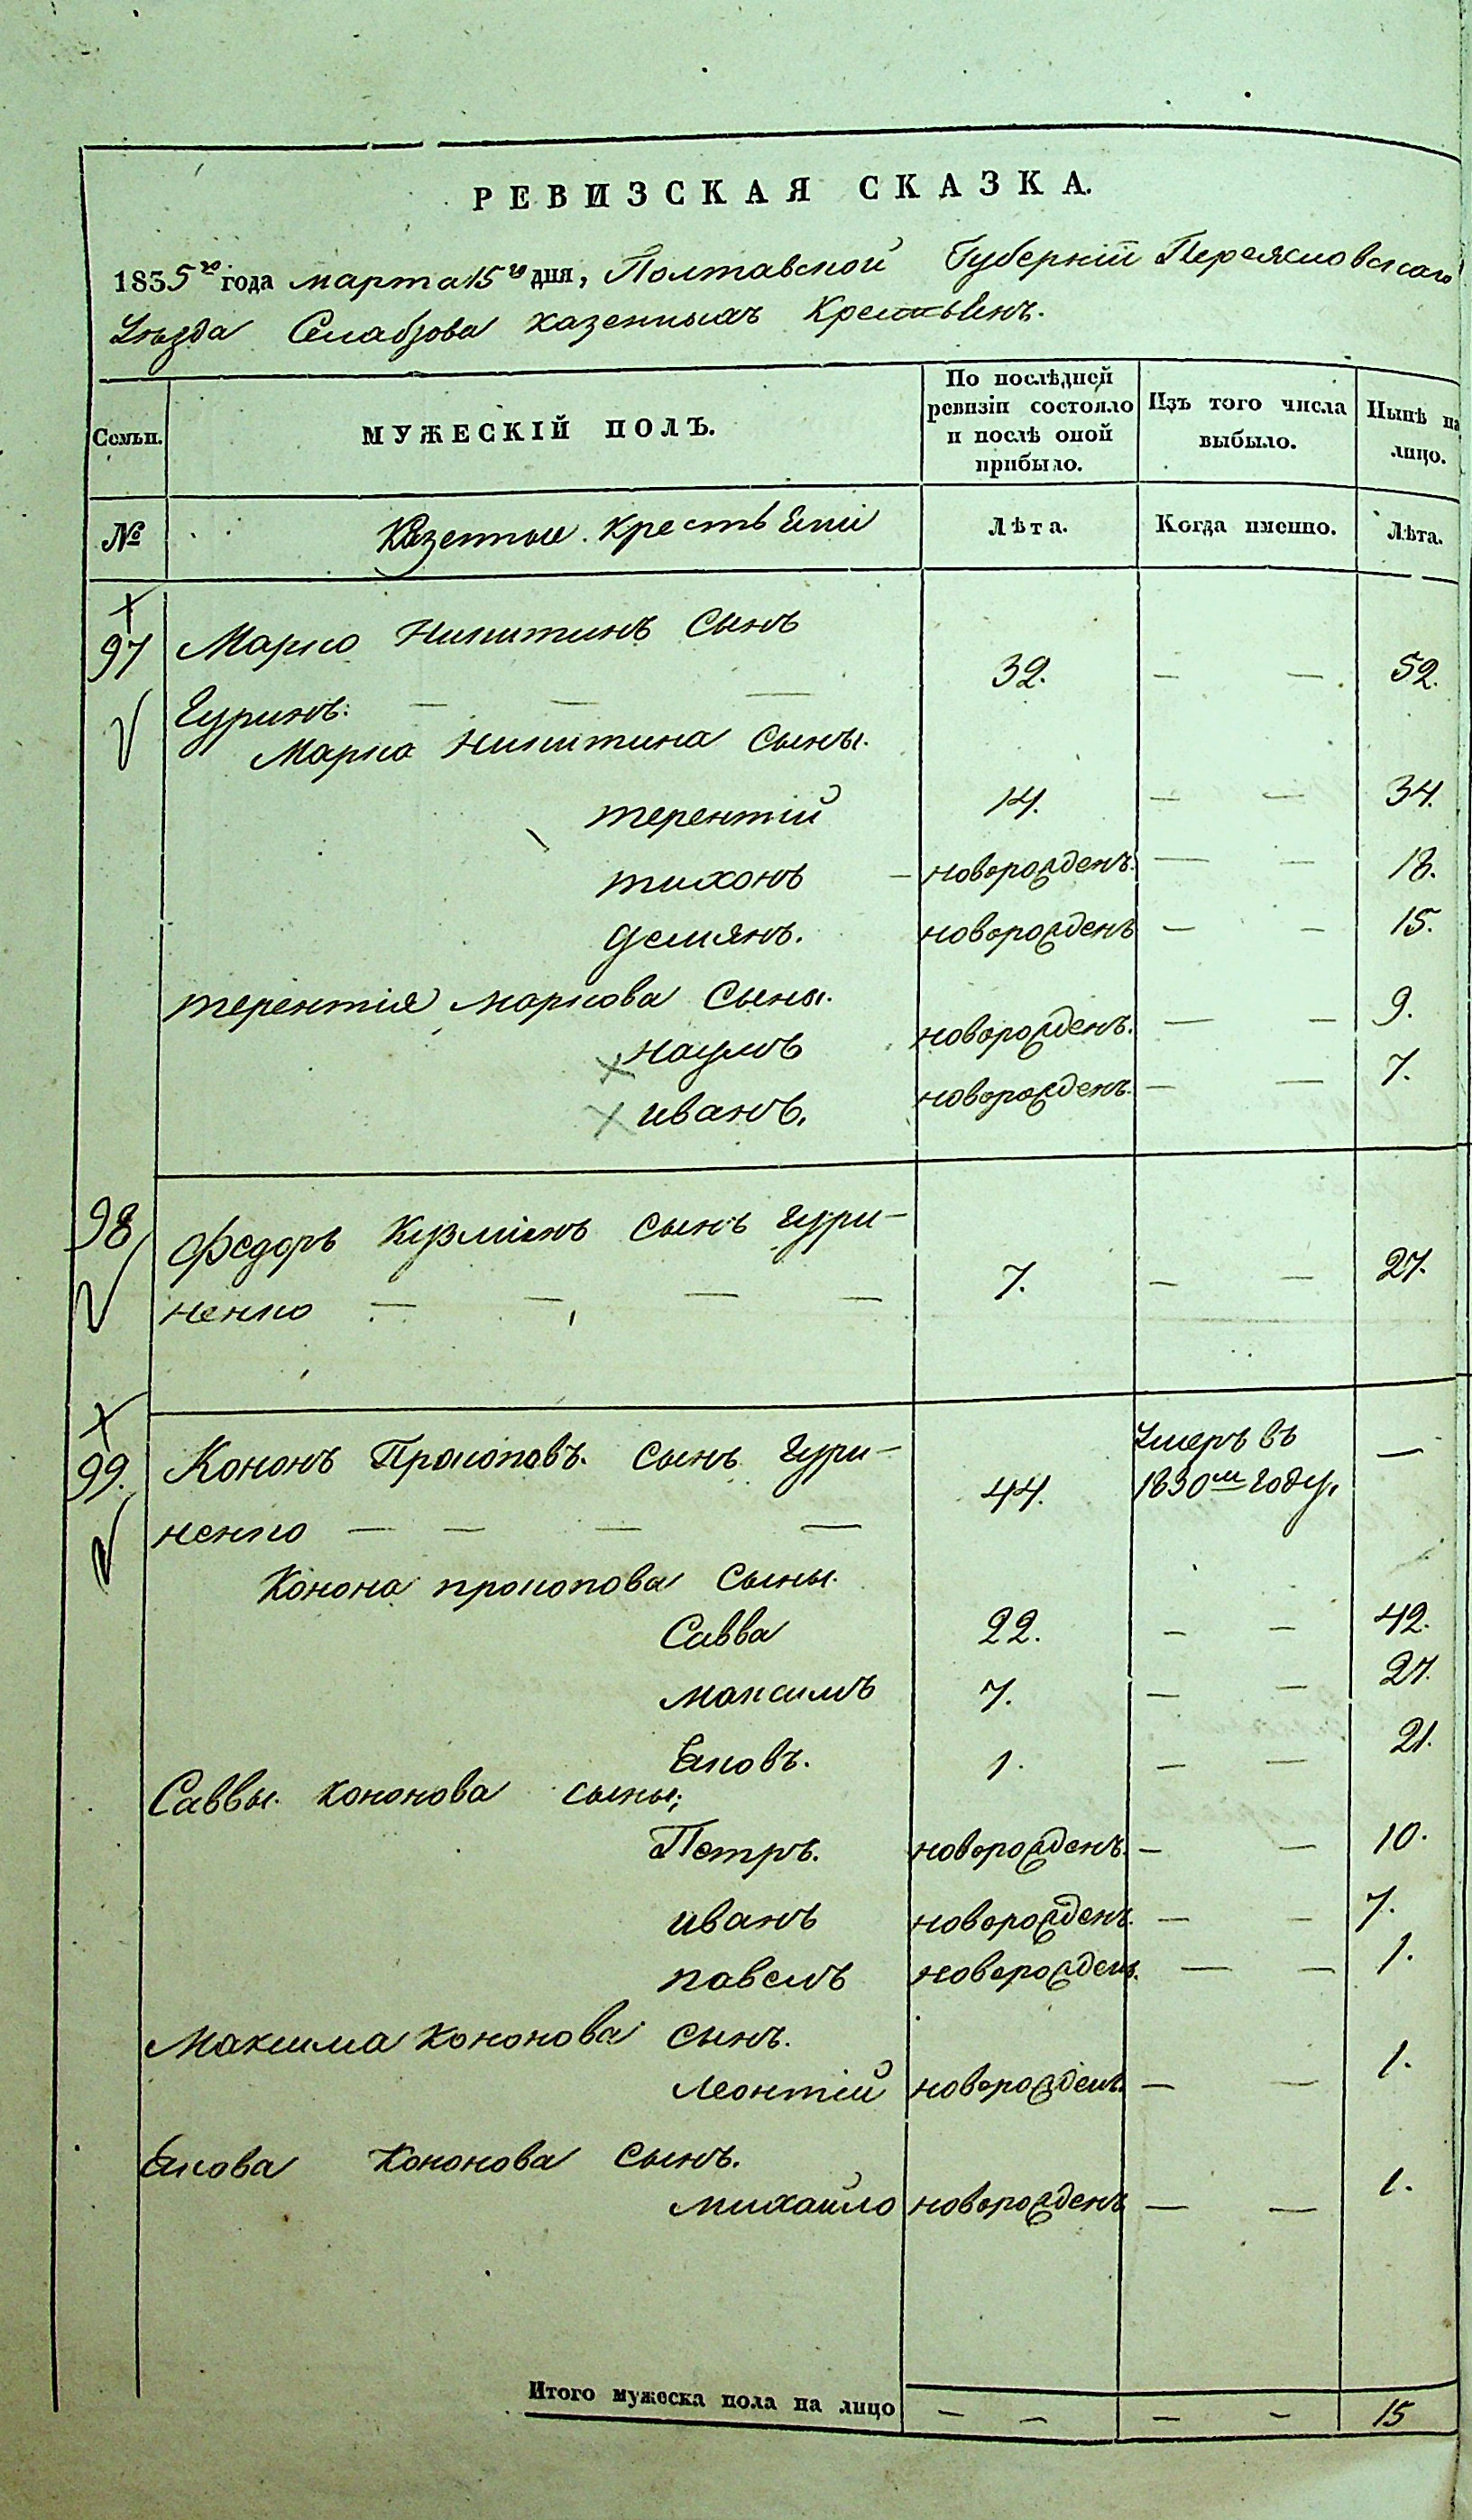 РЕВИЗСКАЯ СКАЗКА.
1835го года марта 15го дня, Полтавской Губерніи Переясловскаго
Уезда казенныхъ Крестьянъ.
Семьи. МУЖЕСКІЙ ПОЛЪ. По послѣдней ревизіи состояло и послѣ оной прибыло. Изъ того числа выбыло. Нынѣ на лицо.
№ Казенные крестьяни Лѣта. Когда именно. Лѣта.
97 Марко Никитинъ сынъ
Гуринъ: — — — 32. — — 52.
Марка Никитина сыны.
терентій 14. — — 34.
тихонъ — новорожденъ. — — 18.
демянъ. новорожденъ — — 15.
терентія маркова сыны.
наумъ новорожденъ. — — 9.
иванъ. новорожденъ. — — 7.
98 Федоръ Кузминъ сынъ Гури-
ненко — — — — 7. — — 27.
99. Кононъ Прокоповъ. сынъ Гури-
ненко — — — — 44. Умеръ въ 1830м году. —
Конона прокопова сыны.
Савва 22. — — 42.
максимъ 7. — — 27.
Яковъ. 1. — — 21.
Саввы. кононова сыны;
Петръ. новорожденъ. — — 10.
иванъ новорожденъ. — — 7.
павелъ новорожденъ. — — 1.
Максима кононова сынъ.
леонтій новорожденъ. — — 1.
Якова Кононова сынъ.
михайло новорожденъ — — 1.
Итого мужеска пола на лицо — — — — 15